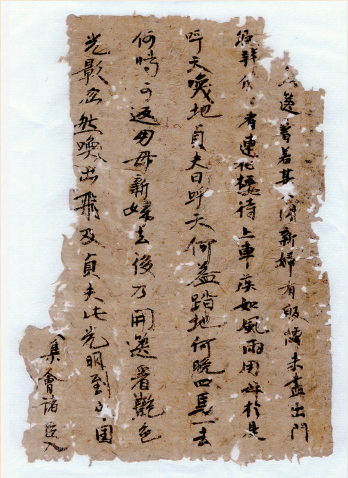 遂著若其新婦有未盡出門
有蓮花待上車疾如風雨用母於是
呼天喚地貞夫曰呼天何益踏地何晚四馬一去
何時可返用母新婦去後乃開遂看艷色
光影忽然喚出飛及貞夫此光明到國
集會諸臣